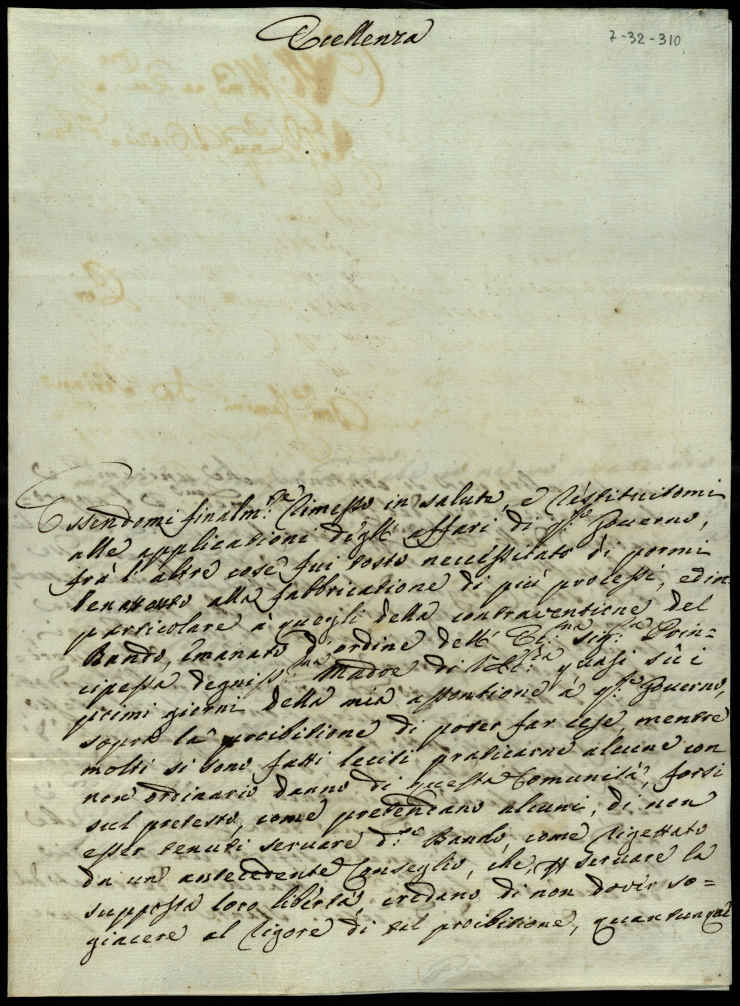 Eccellenza
7-32-310
Essendomi finalm.te rimesso in salute, e restituitomi
alle applicationi degl' affari di q.sto Governo,
frà l' altre cose fui tosto neccessitato di pormi
alla fabbricatione di più processi, ed in
particolare à quegli della contraventione del
Bando, emanato d' ordine dell' Ecc.ma Sig.ra Prin=
cipessa degniss.ma Madre di V.Ecc.za quasi sù i
primi giorni della mia assontione à q.sto Governo,
sopra la proibitione di poter far cese mentre
molti si sono fatti leciti praticarne alcune con
non ordinario danno di questa Comunità, forsi
sul pretesto, come pretendano alcuni, di non
esser tenuti servare d.to Bando, come rigettato
da un' antecedente Conseglio, che p servare la
supposta loro libertà, credano di non dover so=
giacere al rigore di tal proibitione, quantunque